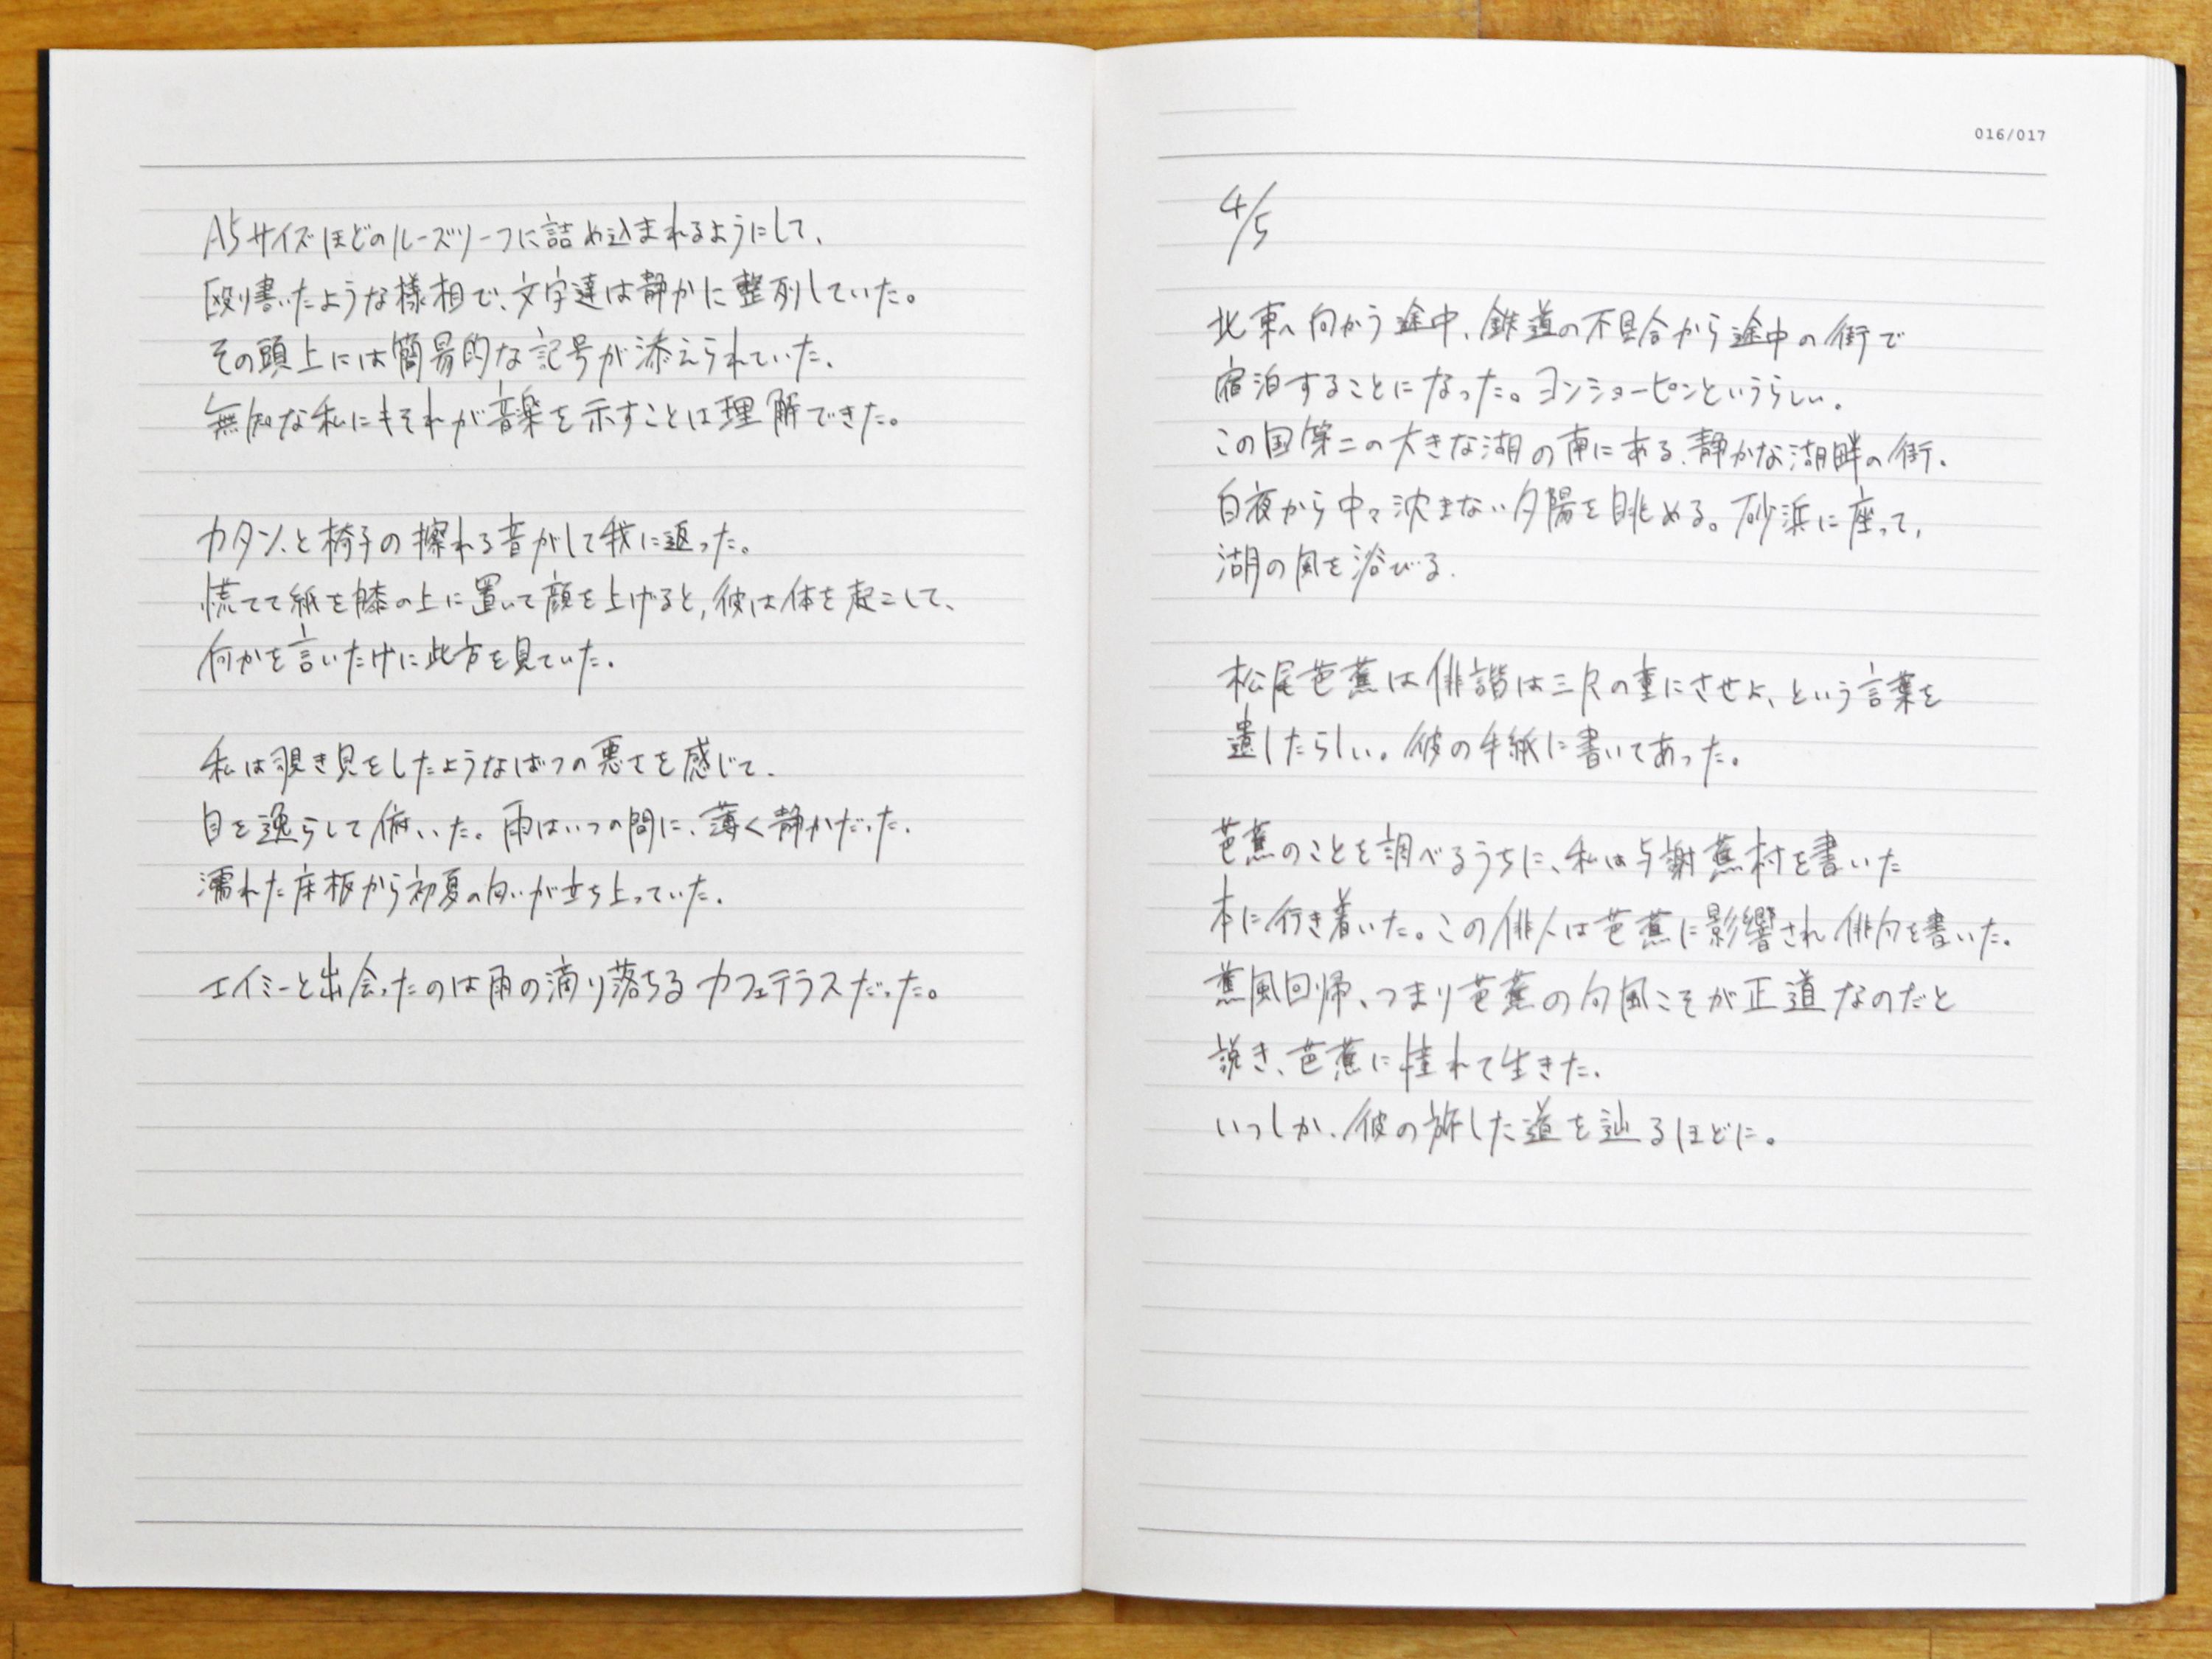 A5サイズほどのルーズリーフに詰め込まれるようにして、
殴り書いたような様相で、文字達は静かに整列していた。
その頭上には簡易的な記号が添えられていた、
無知な私にもそれが音楽を示すことは理解できた。
カタン、と椅子の擦れる音がして我に返った。
慌てて紙を膝の上に置いて顔を上げると、彼は体を起こして、
何かを言いたげに此方を見ていた。
私は覗き見をしたようなばつの悪さを感じて、
目を逸らして俯いた。雨はいつの間に、薄く静かだった、
濡れた床板から初夏の匂いが立ち上っていた。
エイミーと出会ったのは雨の滴り落ちるカフェテラスだった。
016/017
4/5
北東へ向かう途中、鉄道の不具合から途中の街で
宿泊することになった。ヨンショーピンというらしい。
この国第二の大きな湖の南にある、静かな湖畔の街。
白夜から中々沈まない夕陽を眺める。砂浜に座って、
湖の風を浴びる。
松尾芭蕉は俳諧は三尺の童にさせよ、という言葉を
遺したらしい。彼の手紙に書いてあった。
芭蕉のことを調べるうちに、私は与謝蕪村を書いた
本に行き着いた。この俳人は芭蕉に影響され俳句を書いた。
蕉風回帰、つまり芭蕉の句風こそが正道なのだと
説き、芭蕉に憧れて生きた。
いつしか、彼の旅した道を辿るほどに。